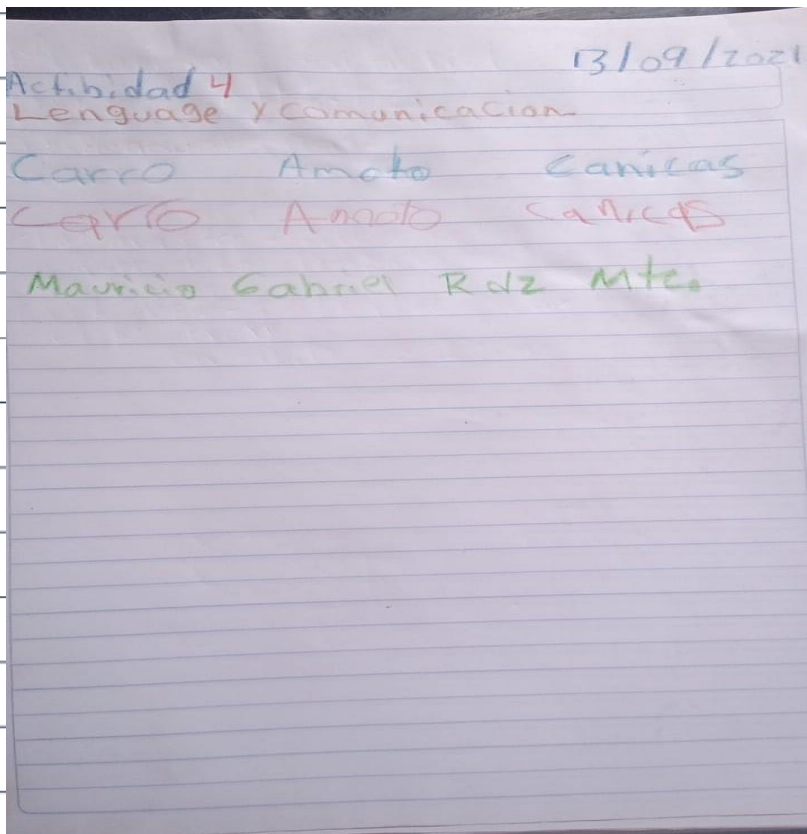 13/09/2021
Actibidad 4
Lenguage y comunicacion
Carro Amoto Canicas
Carro Amoto Canicas
Mauricio Gabriel Rdz Mtz.